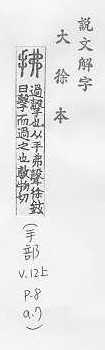 說文解字
大徐本
拂
過擊也从手弗聲徐鍇
曰擊而過之也敷物切
(手部
v.12上
p.8
a.7)